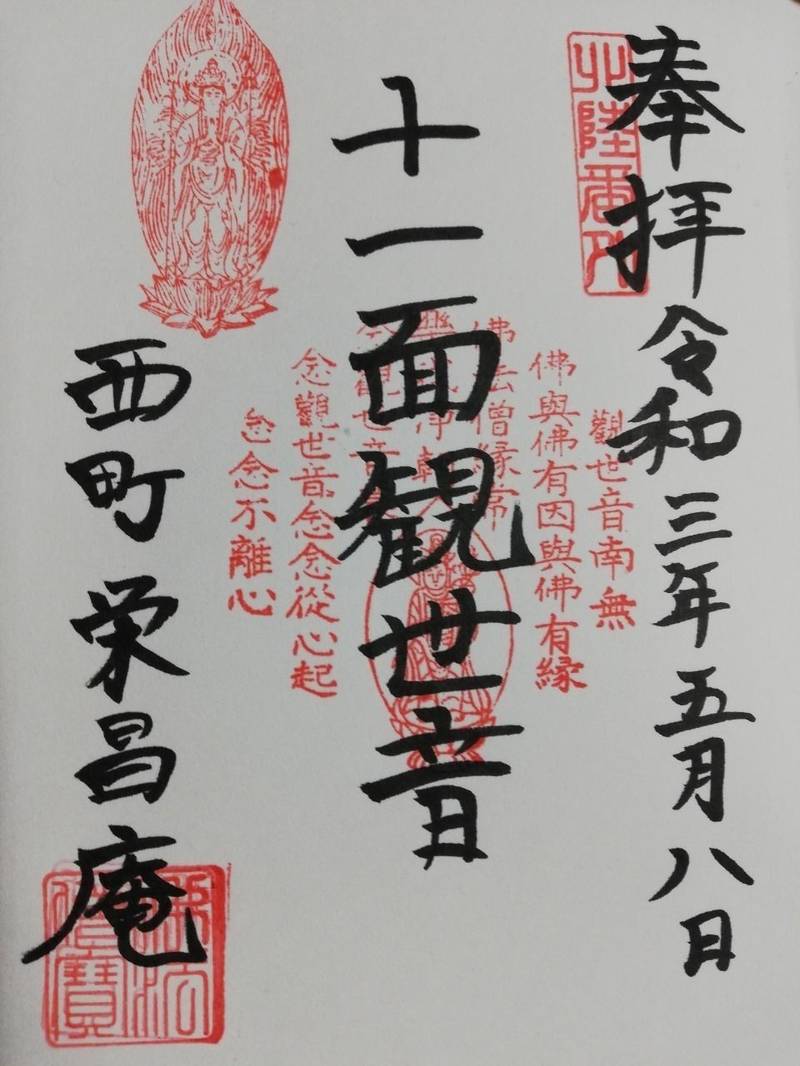 奉拝 令和三年五月八日
北陸番外
十一面観世音
西町 栄昌庵
觀世音南無
佛與佛有因與佛有縁
佛法僧縁常
念觀世音念念從心起
念念不離心
佛法僧寶